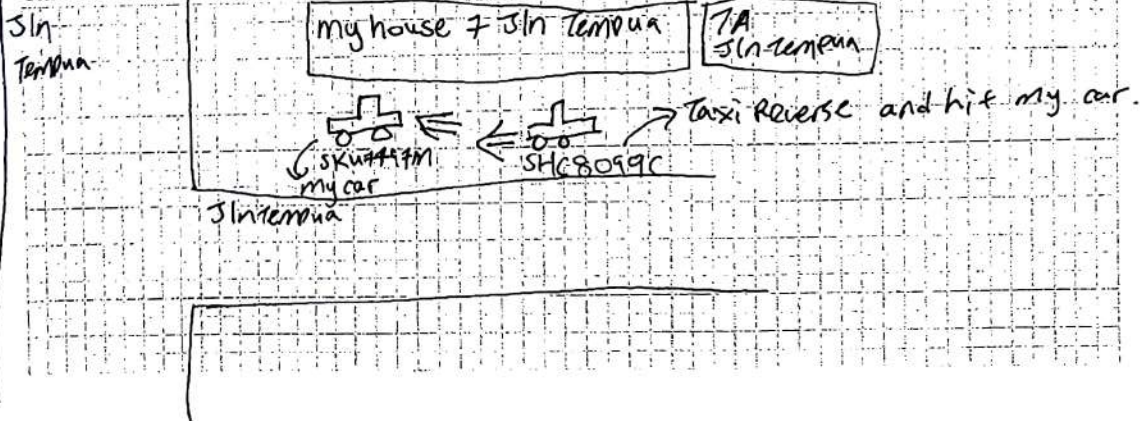 Jln
Tempua
my house 7 Jln Tempua
7A
Jln tempua
Taxi Reverse and hit my car.
SKU7497M
SHC8099C
my car
Jln tempua